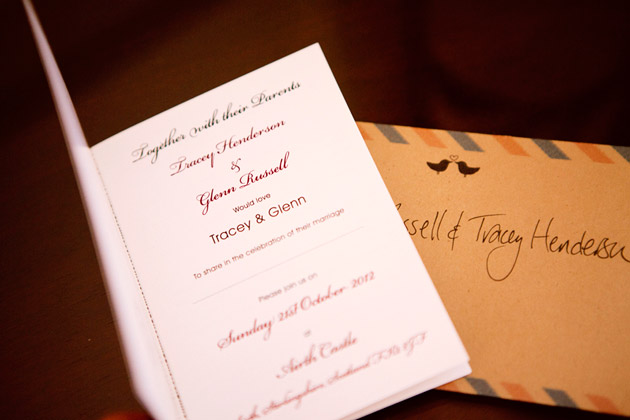 Together with their Parents
Tracey Henderson
&
Glenn Russell
Would love
Tracey & Glenn
To share in the celebration of their marriage
Please join us on
Sunday 21st October 2012
at
Airth Castle
Stirlingshire, Scotland FK2
ssell & Tracey Henderso